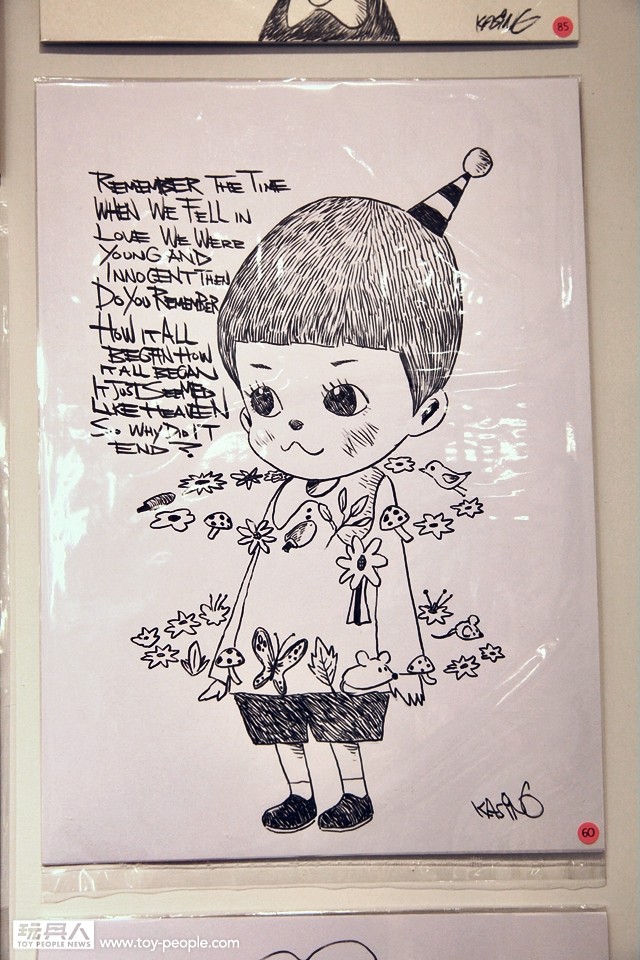 KASING
85
REMEMBER THE TIME
WHEN WE FELL IN
LOVE WE WERE
YOUNG AND
INNOCENT THEN
DO YOU REMEMBER
HOW IT ALL
BEGAN HOW
IT ALL BEGAN
IT JUST SEEMED
LIKE HEAVEN
SO WHY DID IT
END?
KASING
60
玩具人 TOY PEOPLE NEWS www.toy-people.com